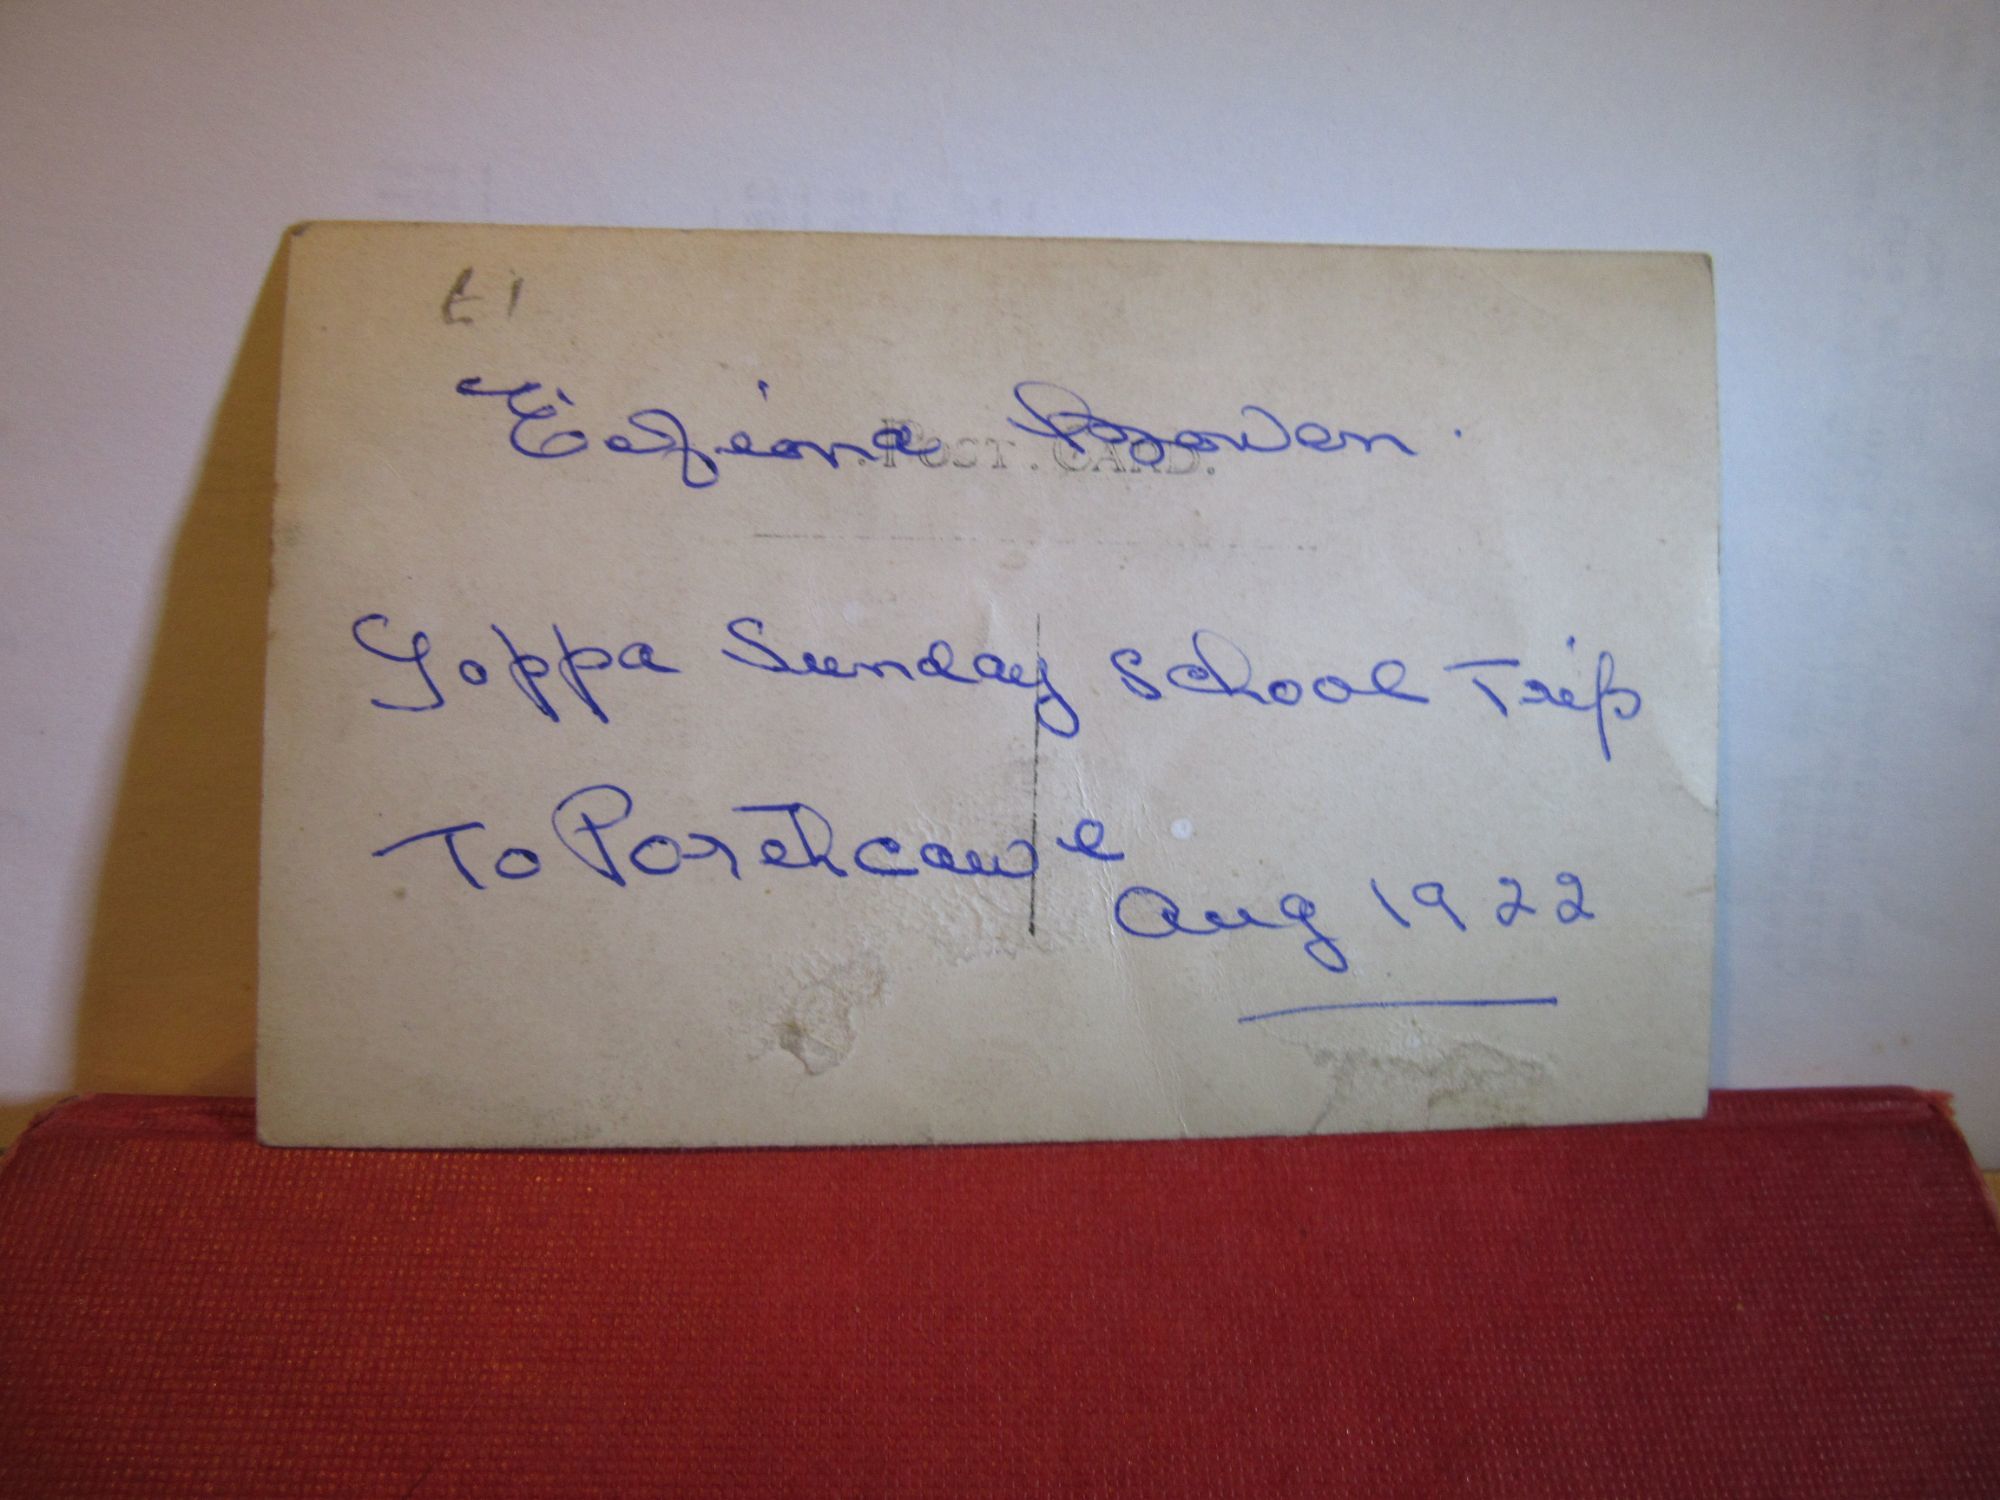 £1
Bowen.
POST CARD.
Joppa Sunday School Trip
To Porthcawl
Aug 1922